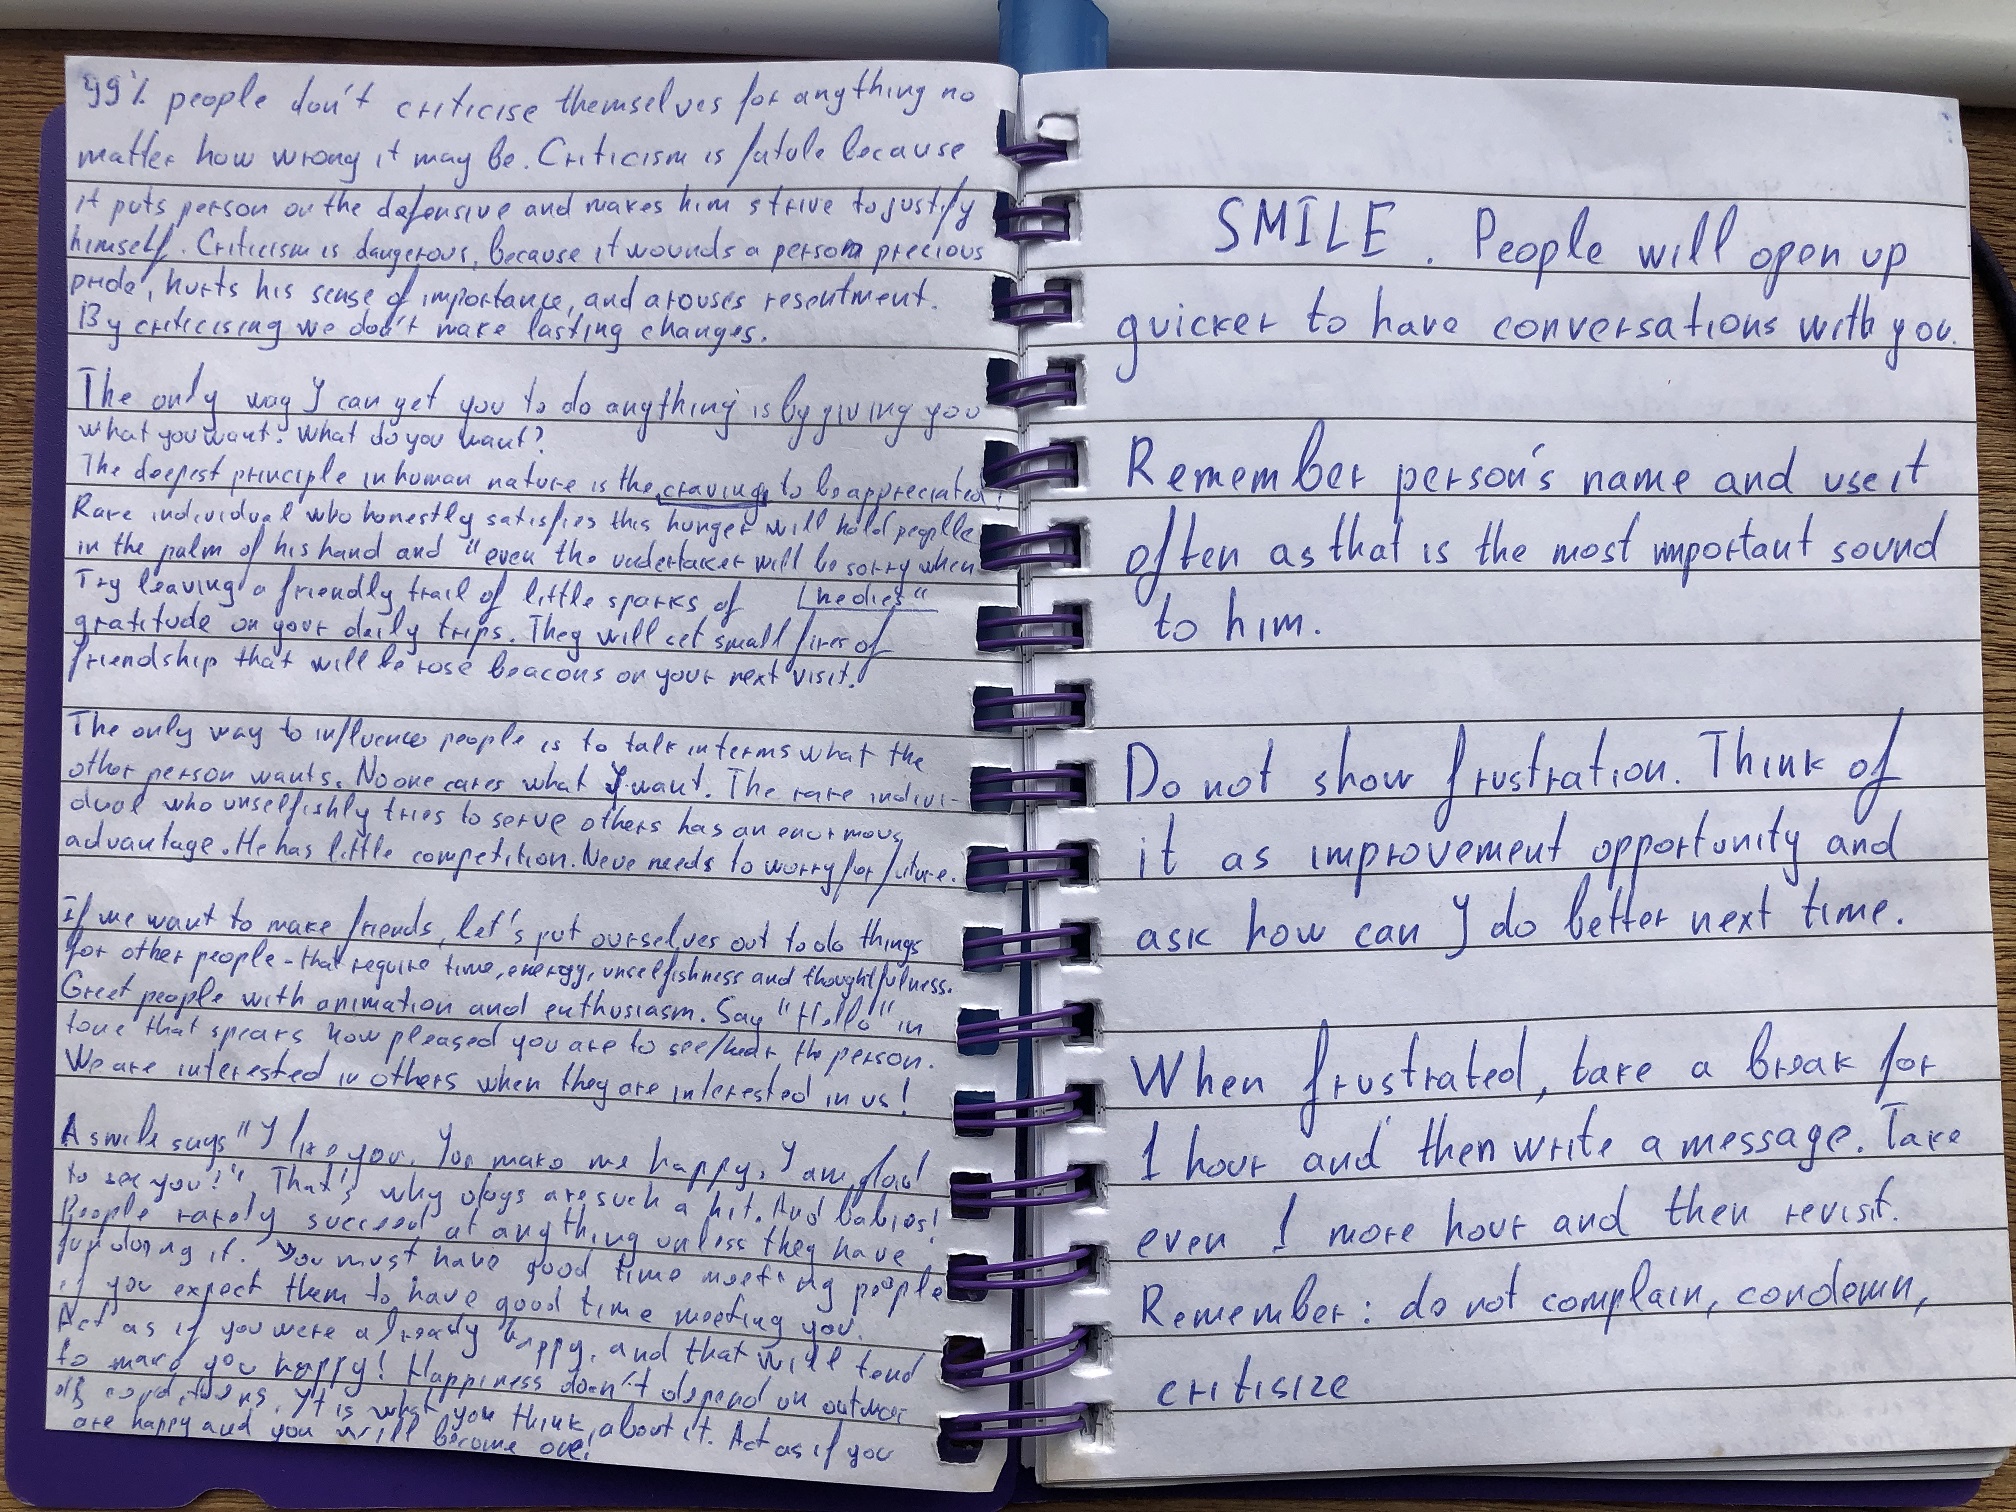 99% people don't criticise themselves for anything no
matter how wrong it may be. Criticism is futule because
it puts person on the defensive and makes him strive to justify
himself. Criticism is dangerous, because it wounds a person precious
pride, hurts his sense of importance, and arouses resentment.
By criticising we don't make lasting changes.
The only way I can get you to do anything is by giving you
what you want. What do you want?
The deepest principle in human nature is the craving to be appreciated!
Rare individual who honestly satisfies this hunger will hold peoplle
in the palm of his hand and "even the undertaker will be sorry when
he dies"
Try leaving a friendly trail of little sparks of
gratitude on your daily trips. They will cet small fires of
friendship that will be rose beacons on your next visit.
The only way to influence people is to talk in terms what the
other person wants. No one cares what I want. The rare indivi-
dual who unselfishly tries to serve others has an enormous
advantage. He has little competition. Neve needs to worry for future.
If we want to make friends, let's put ourselves out to do things
for other people - that require time, energy, unselfishness and thoughtfulness.
Greet people with animation and enthusiasm. Say "Hello" in
tone that spears how pleased you are to see/hear the person.
We are interested in others when they are interested in us!
A smile says "I like you. You make me happy, I am glad
to see you!" That's why dogs are such a hit. And babies!
People rarely succeed at anything unless they have
fun doing it. You must have good time meeting people
if you expect them to have good time meeting you.
Act as if you were already happy, and that will tend
to make you happy! Happiness doen't depend on outwar
conditions. It is what you think about it. Act as if you
are happy and you will become one.
SMILE. People will open up
quicker to have conversations with you.
Remember person's name and use it
often as that is the most important sound
to him.
Do not show frustration. Think of
it as improvement opportunity and
ask how can I do better next time.
When frustrated, take a break for
1 hour and then write a message. Take
even 1 more hour and then revisit.
Remember: do not complain, condemn,
critisize